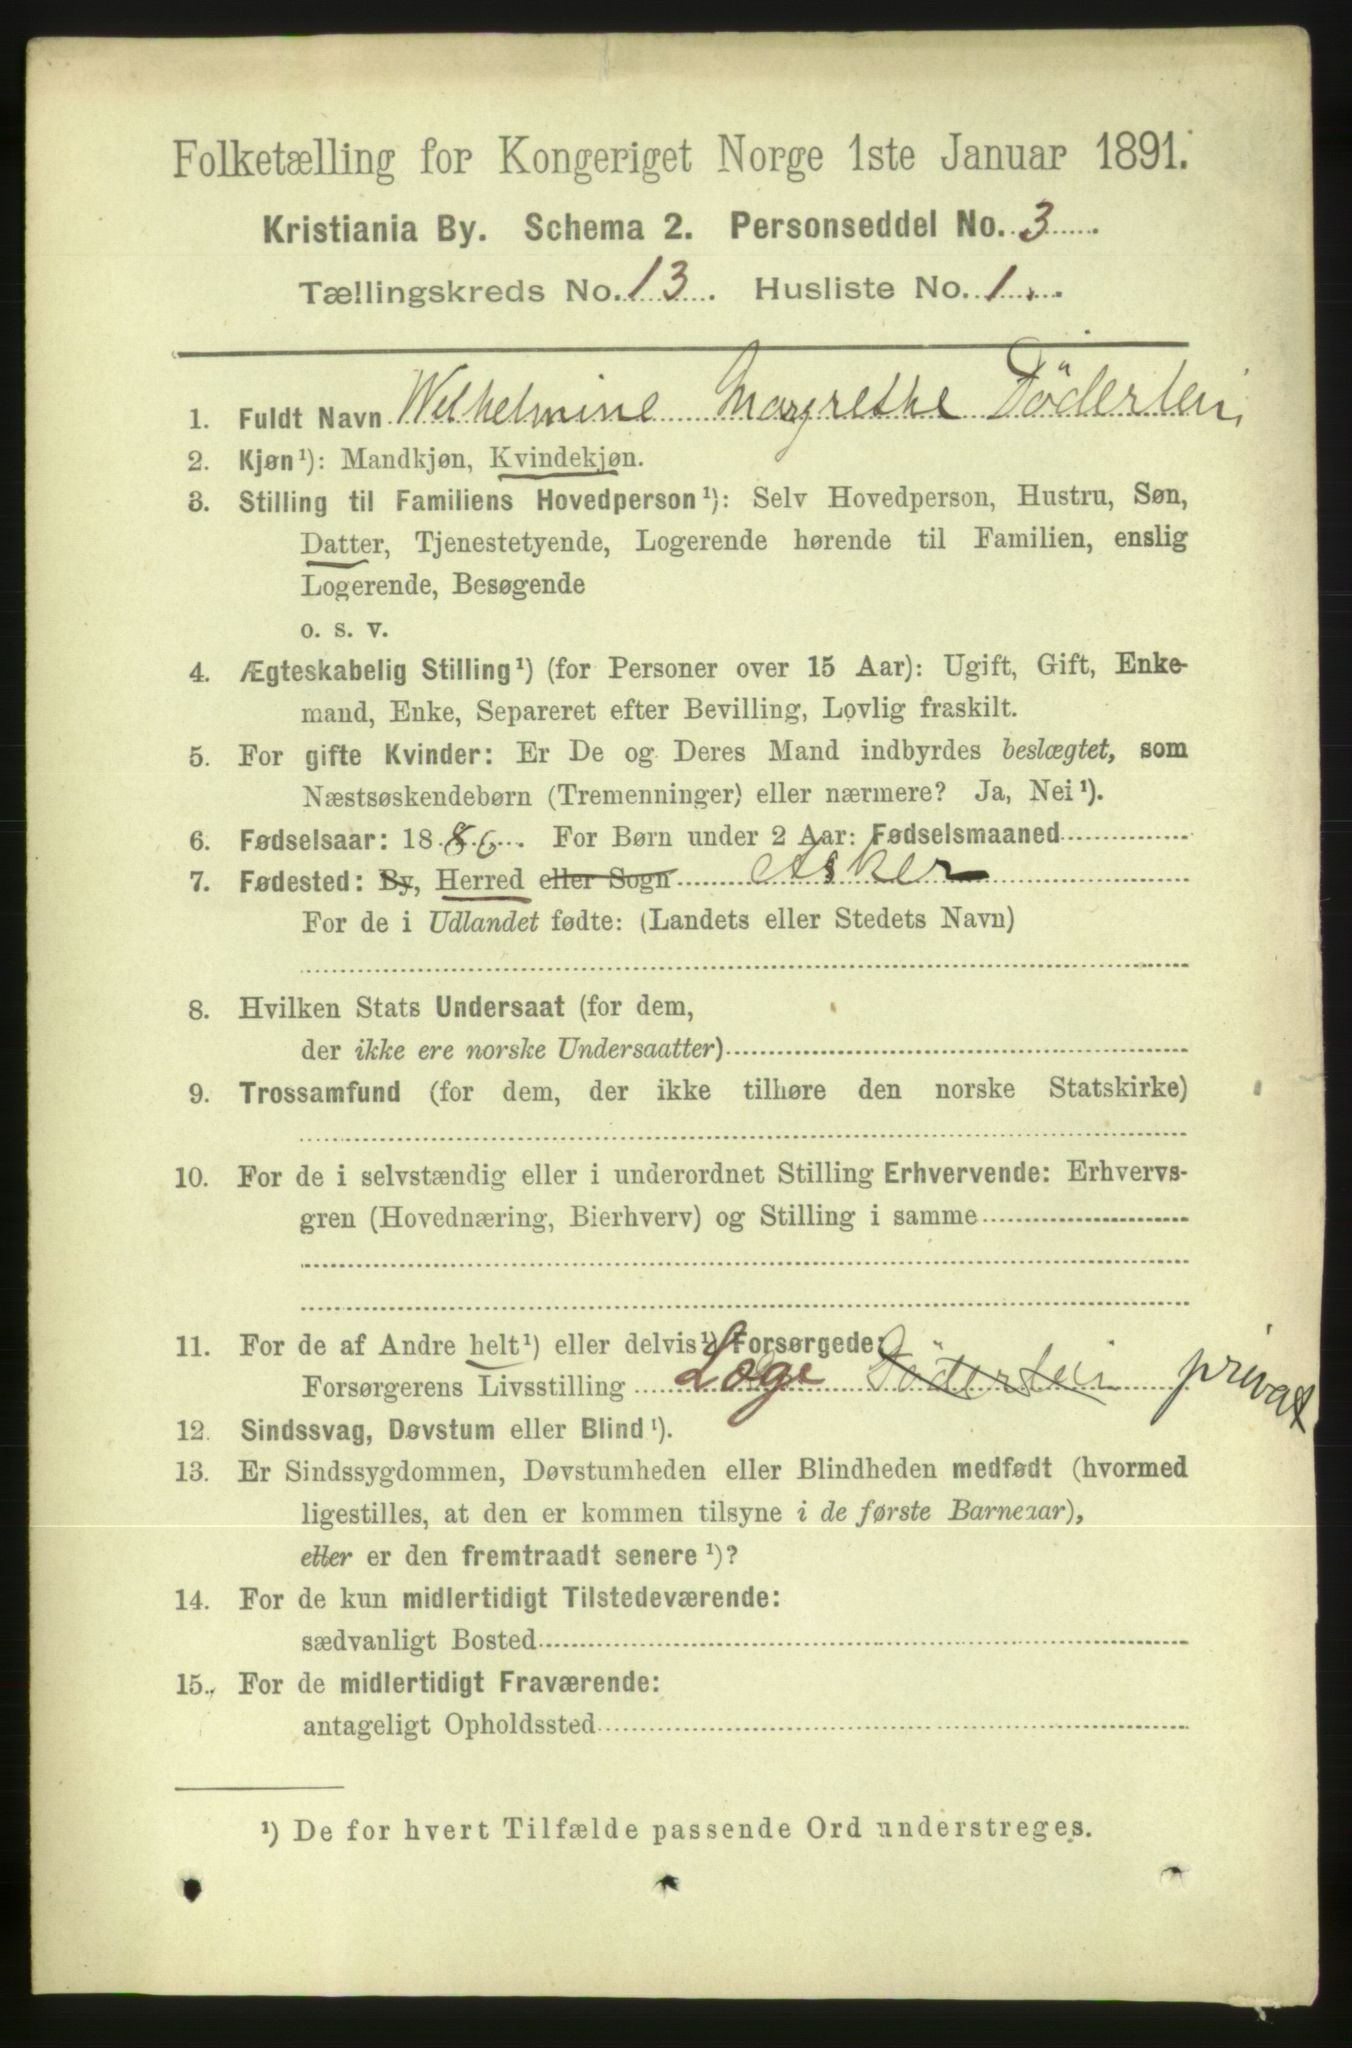 Folketælling for Kongeriget Norge 1ste Januar 1891.
Kristiania By. Schema 2. Personseddel No. 3
Tællingskreds No. 13. Husliste No. 1.
1. Fuldt Navn Wilhelmine Margrethe Döderlein
2. Kjøn¹): Mandkjøn, Kvindekjøn.
3. Stilling til Familiens Hovedperson¹): Selv Hovedperson, Hustru, Søn,
Datter, Tjenestetyende, Logerende hørende til Familien, enslig
Logerende, Besøgende
o. s. v.
4. Ægteskabelig Stilling¹) (for Personer over 15 Aar): Ugift, Gift, Enke-
mand, Enke, Separeret efter Bevilling, Lovlig fraskilt.
5. For gifte Kvinder: Er De og Deres Mand indbyrdes beslægtet, som
Næstsøskendebørn (Tremenninger) eller nærmere? Ja, Nei¹).
6. Fødselsaar: 1886. For Børn under 2 Aar: Fødselsmaaned
7. Fødested: By, Herred eller Sogn Asker
For de i Udlandet fødte: (Landets eller Stedets Navn)
8. Hvilken Stats Undersaat (for dem,
der ikke ere norske Undersaatter)
9. Trossamfund (for dem, der ikke tilhøre den norske Statskirke)
10. For de i selvstændig eller i underordnet Stilling Erhvervende: Erhvervs-
gren (Hovednæring, Bierhverv) og Stilling i samme
11. For de af Andre helt¹) eller delvis¹) Forsørgede:
Forsørgerens Livsstilling Læge Döderlein privat
12. Sindssvag, Døvstum eller Blind¹).
13. Er Sindssygdommen, Døvstumheden eller Blindheden medfødt (hvormed
ligestilles, at den er kommen tilsyne i de første Barneaar),
eller er den fremtraadt senere¹)?
14. For de kun midlertidigt Tilstedeværende:
sædvanligt Bosted
15. For de midlertidigt Fraværende:
antageligt Opholdssted
¹) De for hvert Tilfælde passende Ord understreges.